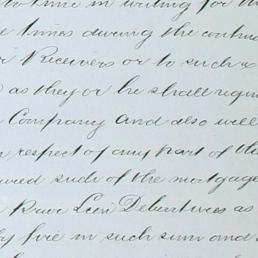 to time in writing for the
times during the contin
Receivers or to such
as they or he shall requi
Company and also well
respect of any part of the
such of the mortgage
Prior Lien Debentures as
by fire in such sum and